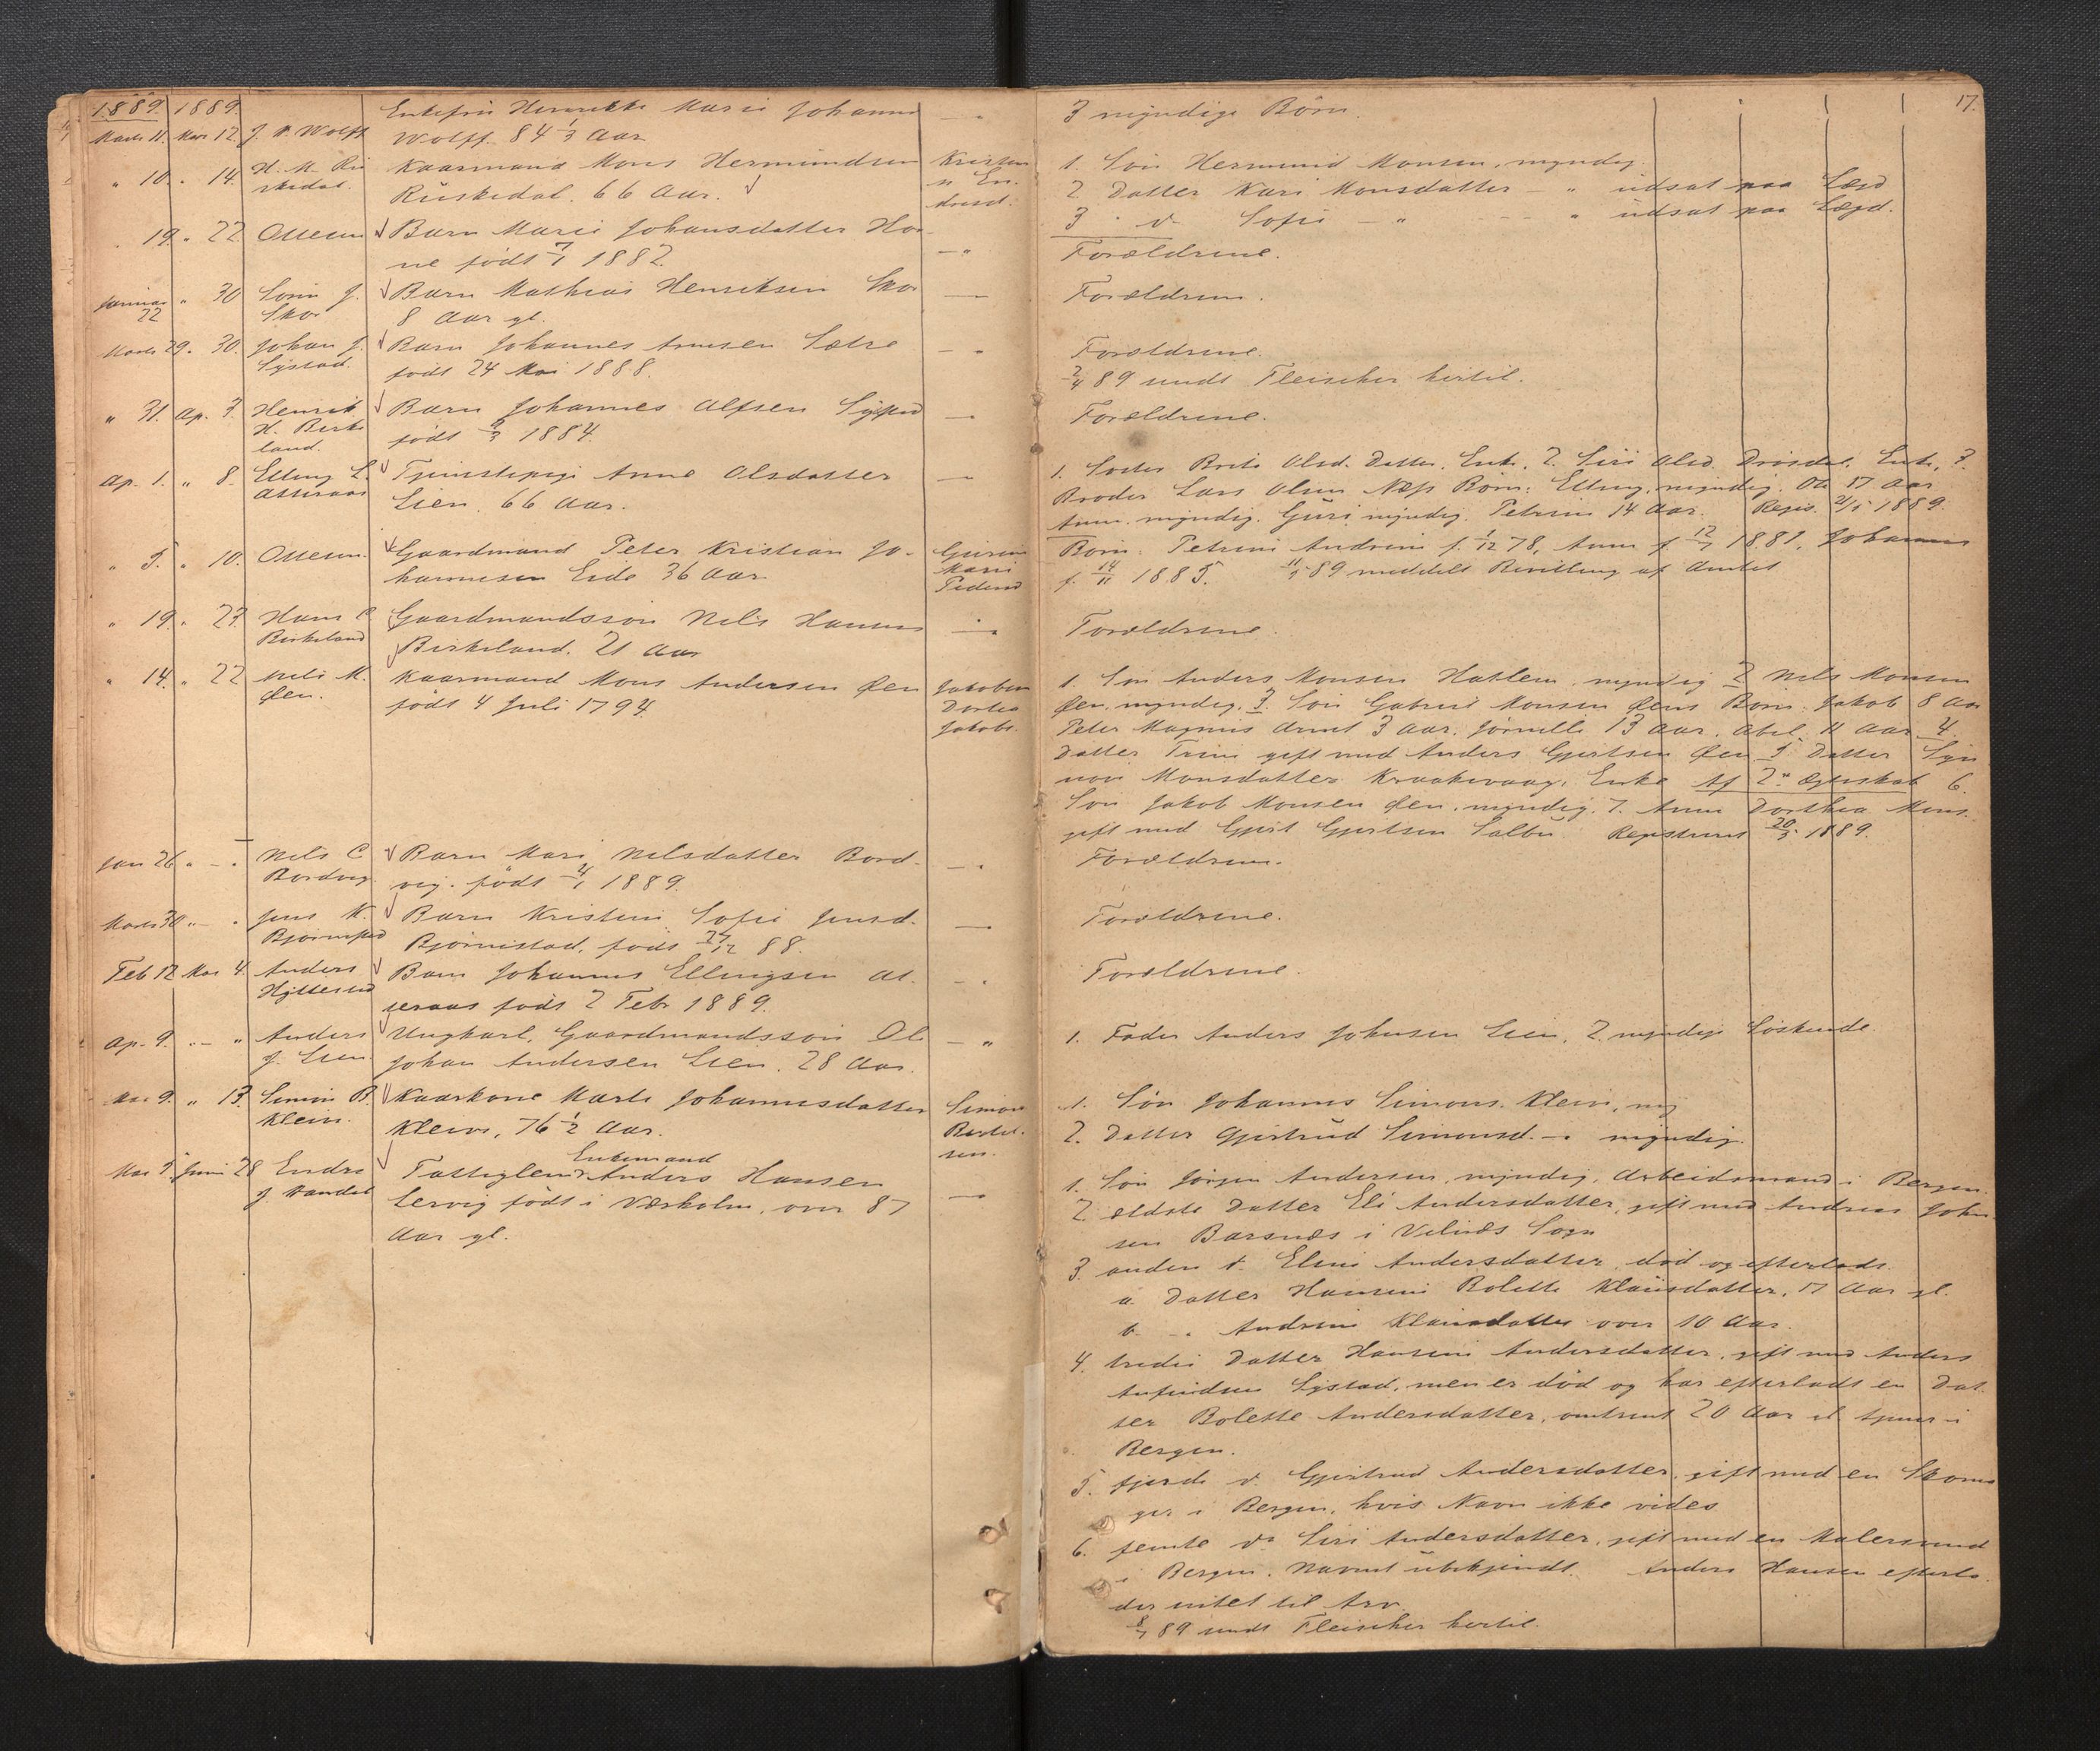 1889. 1889. Enkefru Henrikke Marie Johanne
Marts 11. Mar 12. J. Wolff Wolff. 84 1/3 Aar —"
" 10. " 14. H. M. Rü Kaarmand Mons Hermundsen
skedal. Rüskedal. 66 Aar.
" 19. " 22 Ottesen Barn Marie Johansdatter Ho-
ne født 7/1 1882. —"
Januar " 30 J. Barn Mathias Henriksen Sko
22 Sko 8 Aar gl.
Marts 29. " 30. Johan J. Barn Johannes Arnesen Sætre —"
Systad. født 24 Mai 1888.
" 31. Ap. 3. Henrik Barn Johannes Alfsen
H. Birke født 1884.
land.
Ap. 1. " 8. Elling L. Anne Olsdatter
Atteraas Lien, 66 Aar.
" 5. " 10. Ottesen. Gaardmand Peter Kristian Jo-
hannesen Eide 36 Aar Marie
" 19. " 23. Hans Gaardmandssøn Nils Hansen
Birkeland Birkeland. 21 Aar
" 14. " 22 Nils M. Kaarmand Mons Andersen Øen
Øen. født 4 Juli 1794. Jakobs.
Jan 26 " — " Nils Barn Mari Nilsdatter Bord-
Bordvig. vig. født 4/1 1889.
Marts 30 " — " Jens M. Barn Kristine Sofie Jensd.
Bjørnestad, født 27/12 88.
Feb 12 Mai 4. Anders Barn Johannes Ellingsen At-
Hyllestad teraas født 2 Febr 1889.
Ap. 9. " — " Anders Ungkarl, Gaardmandssøn Ol — "
J. Lien Johan Andersen Lien. 28 Aar.
Mai 9. " 13. Simon B. Kaarkone Marte Johannesdatter Simon
Kleiva, 76 1/2 Aar. Bertel-
sen.
Mai Juni 28 Endre Fattiglem Enkemand Anders Hansen
J. Lervig født i Værholm, over 87
Aar gl.
17.
3 myndige Børn.
1. Søn Hermund Monsen, myndig.
2. Datter Kari Monsdatter — " udsat paa Lægd
3 do Sofie — " " udsat paa Lægd.
Forældrene.
Forældrene.
Forældrene.
2/4 89 sendt Fleischer hertil.
Forældrene.
1. Søster Brita Olsd. Datter, Enke, 2. Siri Olsd. Enke, 3.
Broder Lars Olsen Børn: Elling, myndig, 17 Aar
Anne, myndig. Guri, myndig. Petrine 14 Aar. 1889.
Børn: Petrine Andrine f. 78, Anne f. 12/7 1881, Johannes
f. 14/11 1885. 89 meddelt Bevilling af Amtet
Forældrene.
1. Søn Anders Monsen Hatlem, myndig 2 Nils Monsen
Øen, myndig, 3. Søn Gabriel Monsen Øens Børn: Jakob 8 Aar
Peter Magnus Arnt 3 Aar. 13 Aar. Abel 11 Aar 4.
Datter Trine gift med Anders Gjertsen Øen 5. Datter Syn
nove Monsdatter Kraakevaag, Enke Af 2det Ægteskab 6.
Søn Jakob Monsen Øen, myndig. 7. Anne Dorthea Mons.
gift med Gjert Gjertsen Salbu. Registreret 20/5 1889.
Forældrene.
Forældrene.
Forældrene.
1. Fader Anders Johnsen Lien, 2. myndige Søskende.
1. Søn Johannes Simons. Kleiv, my
2. Datter Gjertrud Simonsd. — " myndig.
1. Søn Jørgen Andersen, myndig, Arbeidsmand i Bergen.
2. ældste Datter Eli Andersdatter, gift med Andreas John-
sen Barsnes i Vilnæs Sogn
3. anden do Eline Andersdatter, død og efterladt
a. Datter Hansine Bolette Klausdatter, 17 Aar gl.
b. — " Andrine Klausdatter over 10 Aar.
4. tredie Datter Hansine Andersdatter, gift med Anders
Anfindsen Systad, men er død og har efterladt en Dat-
ter Bolette Andersdatter, omtrent 20 Aar gl. tjener i
Bergen.
5. fjerde do Gjertrud Andersdatter, gift med en Skoma
ger i Bergen, hvis Navn ikke vides
6. femte do Siri Andersdatter, gift med en Malersvend
i Bergen, Navnet ubekjendt. Anders Hansen efterla-
der intet til Arv.
8/7 89 sendt Fleischer hertil.